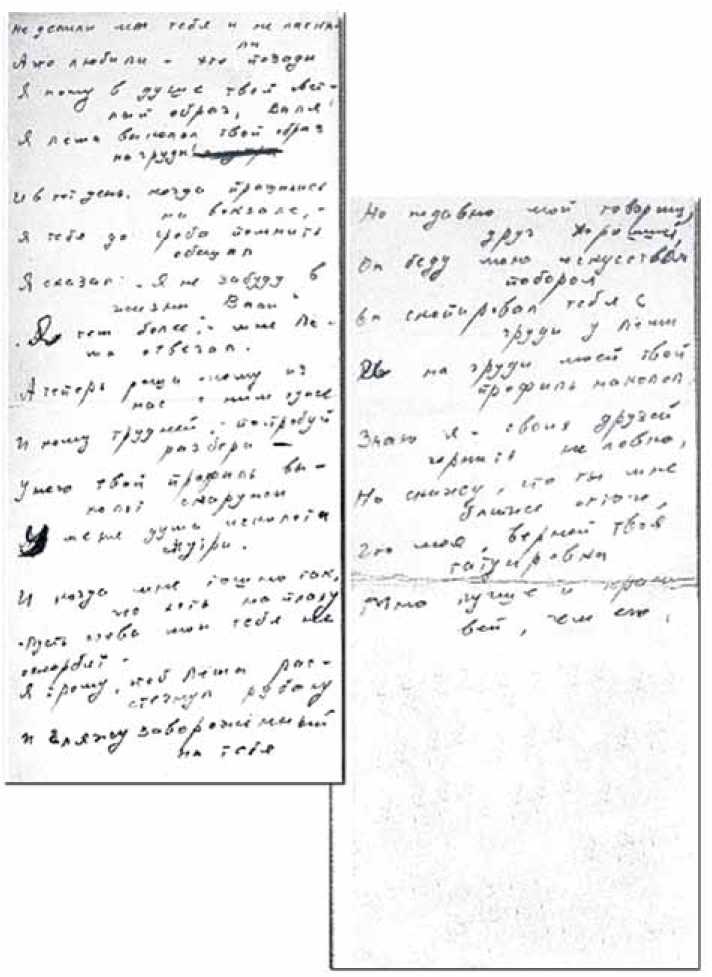 Не делили мы тебя и не ласкали
А что любили - это позади
ли
Я ношу в душе твой свет-
лый образ, Валя
А Леша выколол твой образ
на груди!
И в тот день, когда прощались
на вокзале, -
Я тебя до гроба помнить
обещал
Я сказал: "Я не забуду в
жизни Вали"
"Я тем более", - мне Ле-
ша отвечал.
А теперь реши - кому из
нас с ним хуже
И кому трудней, - попробуй
разбери -
У него твой профиль вы-
колот снаружи
У меня душа исколота
снутри.
И когда мне тошно так,
что хоть на плаху
- Пусть слова мои тебя не
оскорбят -
Я прошу, чтоб Леша рас-
стегнул рубаху
И гляжу завороженный
на тебя
Но недавно мой товарищ,
друг хороший,
Он беду мою искусством
поборол
Он скопировал тебя с
груди у Леши
на груди моей твой
профиль наколол.
Знаю я - своих друзей
чернить неловко,
Но скажу, что ты мне
ближе оттого,
Что моя, верней твоя
татуировка
Много лучше и краси-
вей, чем его.